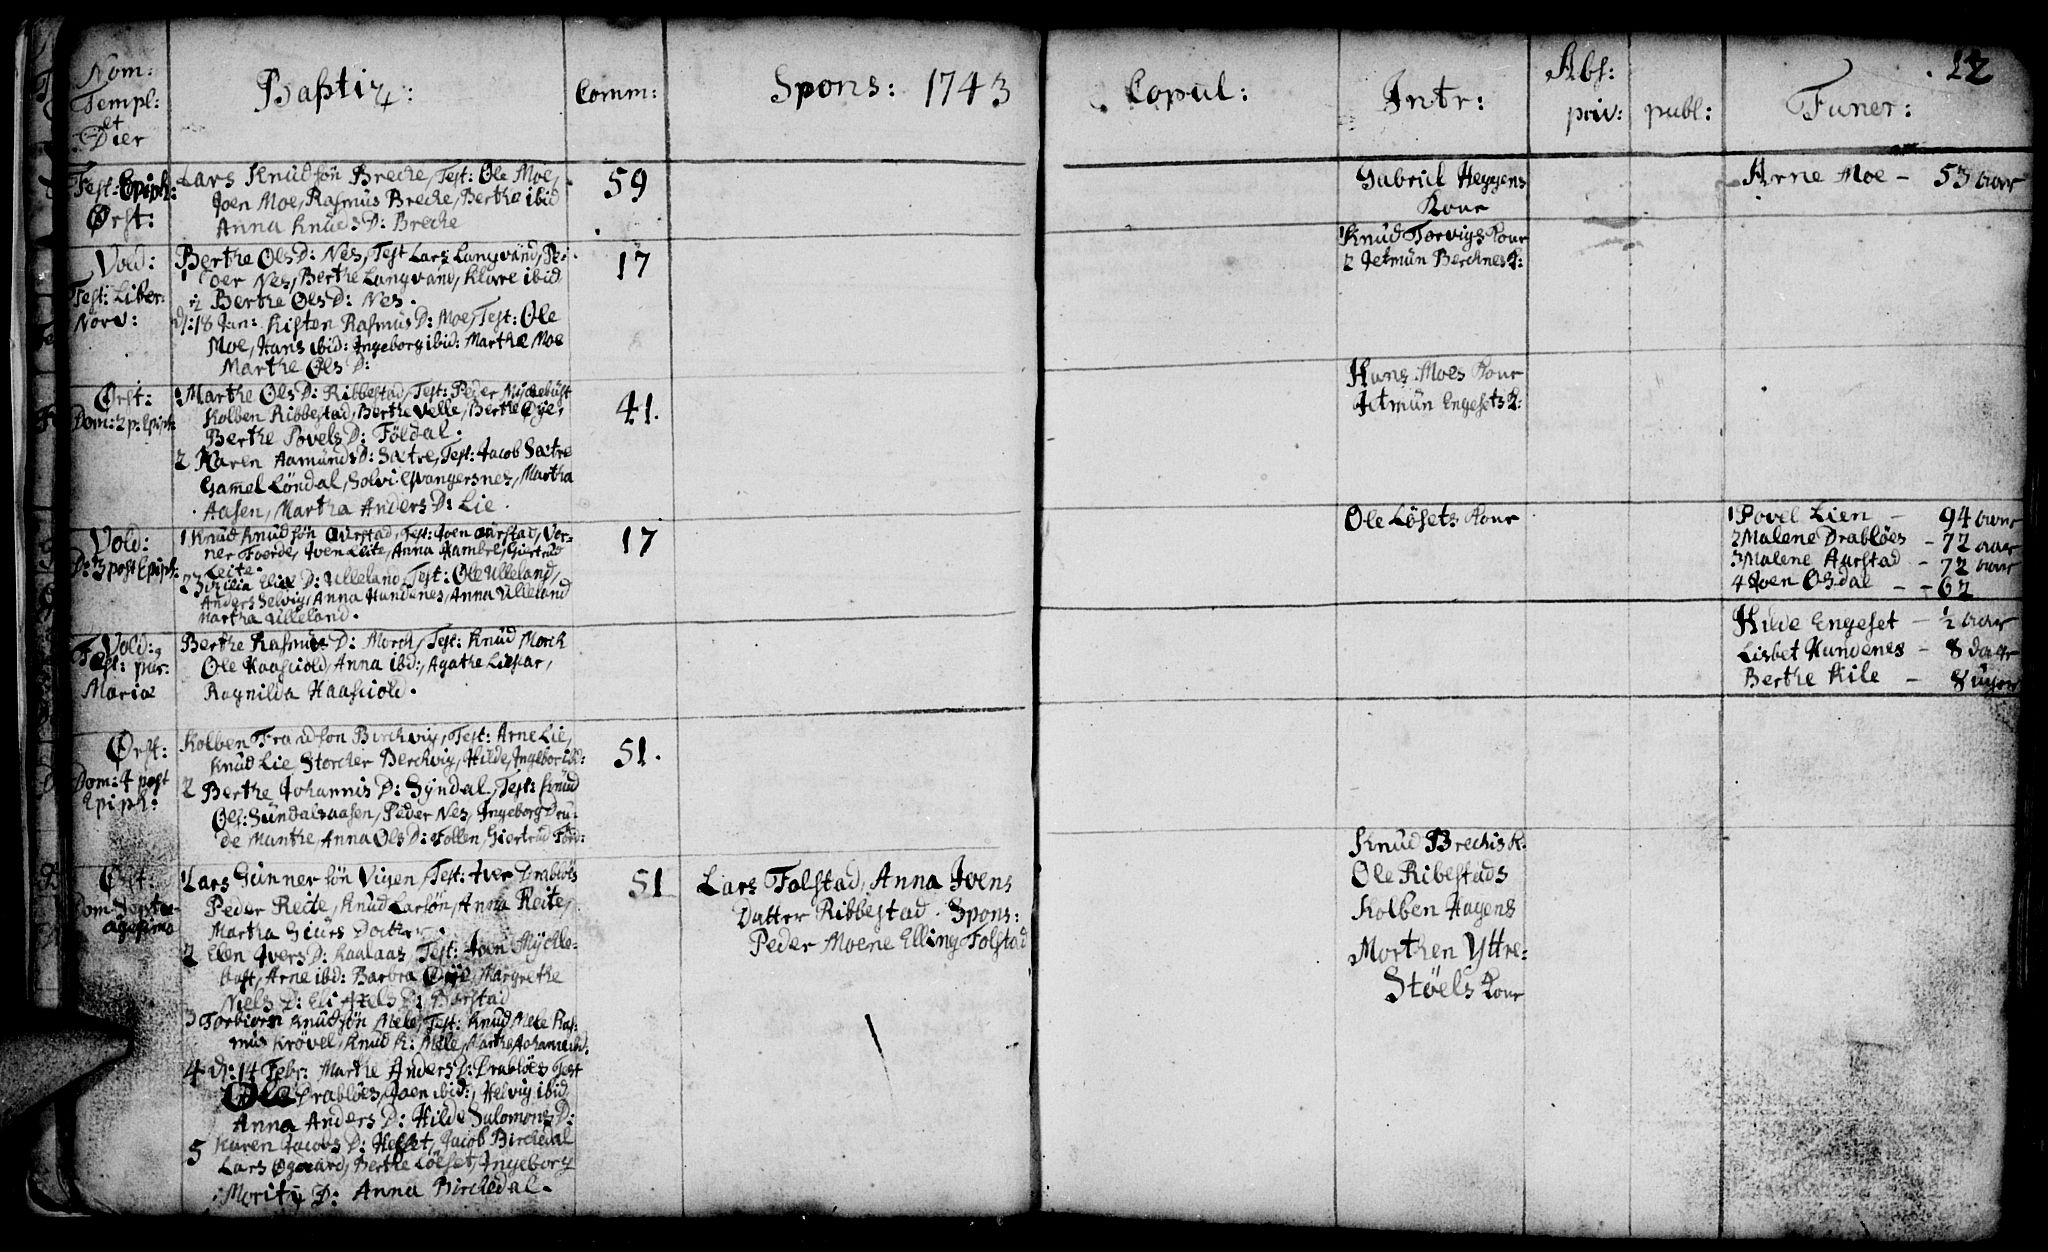 Nom:
Templ:
et
Dier
Baptiz:
Comm:
Spons: 1743
Copul:
Intr:
Abs:
priv:
publ:
Funer:
12
Fest: Epiph:
Ørst:
Lars Knudsön Breche, Test: Ole Moe,
Joen Moe, Rasmus Breche, Berthe ibid
Anna Knuds D: Breche
59
Gabriel Heggens
Kone
Arne Moe - 53 aar
Vold:
Fest: Liber:
Norv:
Berthe Ols D: Nes, Test Lars Langvand, Pe-
der Nes, Berthe Langvand, Klare ibid
Berthe Ols D: Nes.
d: 18 Jan: Kisten Rasmus D: Moe, Test: Ole
Moe, Hans ibid: Ingeborg ibid: Marthe Moe
Marthe Ols D:
17
1 Knud Torvigs Kone
2 Jetmun Berchnes K:
Ørst:
Dom: 2 p: Epiph
1 Marthe Ols D: Ribbestad, Test: Peder Myckebust
Kolben Ribbestad, Berthe Velle, Berthe Øye,
Berthe Povels D: Földal.
2 Karen Aamunds D: Sætre, Test: Jacob Sætre
Gamel Löndal, Solvi Qvangersnes, Martha
Aasen, Martha Anders D: Lie.
41.
Hans Moes Kone
Jetmun Engesets K:
Vold:
D: 3 post Epiph:
1 Knud Knudsön Aurstad, Test: Joen Aurstad, Ver-
ner Foerde, Iven Leite, Anna Hambre, Giertrud
Leite.
2 Ulleland, Test: Ole Ulleland,
Anders Selvig, Anna Hundenes, Anna Ulleland
Martha Ulleland.
17
Ole Löset: Kone
1 Povel Lien - 94 aar
2 Malene Drabløes - 72 aar
3 Malene Aurstad - 72 aar
4 Joen Osdal - - 62
Vold:
Fest: pur:
Mariæ
Berthe Rasmus D: Morch, Test: Knud Morch
Ole Haaskiold, Anna ibid:, Agathe Lieskar,
Ragnilda Haaskiold.
Hilde Engeset - ½ aar
Lisbet Hundenes - 8 dage
Berthe Kile - 8 uger
Ørst:
Dom: 4 post
Epiph:
Kolben Berchvig, Test: Arne Lie,
Knud Lie Storcher Berchvig, Hilde, Ingebor ibid:
2 Berthe Johannis D: Syndal, Test: Knud
Ols: Sundalsaasen, Peder Nes, Ingeborg Dru-
de Munthe, Anna Ols D: Follen, Giertrud
51.
Ørst:
Dom: Septu-
agesima
1 Lars Gunnersön Vigen, Test: Iver Drabløs
Peder Reite, Knud Larsön, Anna Reite,
Martha Siurs Dotter.
2 Elen Ivers D: Test: Iven Myckle-
bost, Arne ibid: Barbra Øye, Margrethe
Niels D: Eli Axels D: Barstad
3 Torbiorn Knudsön Mele, Test: Knud Mele Ras-
mus Krøvel, Knud K: Mele, Martha Johanne ibd.
4 d: 14 Febr: Marthe Anders D: Drabløes Test
Ole Drabløes, Joen ibid:, Helvig ibid
Anna Anders D: Hilde Salomons D:
5 Karen Jacobs D: Hesset, Jacob Birchedal
Lars Øgaard, Berthe Löeset, Ingeborg
Moritz D: Anna Birchedal.
51
Lars Folstad, Anna Ivens
Datter Ribbestad. Spons:
Peder Moene Elling Folstad
Knud Brechis K.
Ole Ribestads
Kolben Hagens
Morthen Yttre-
Støels Kone